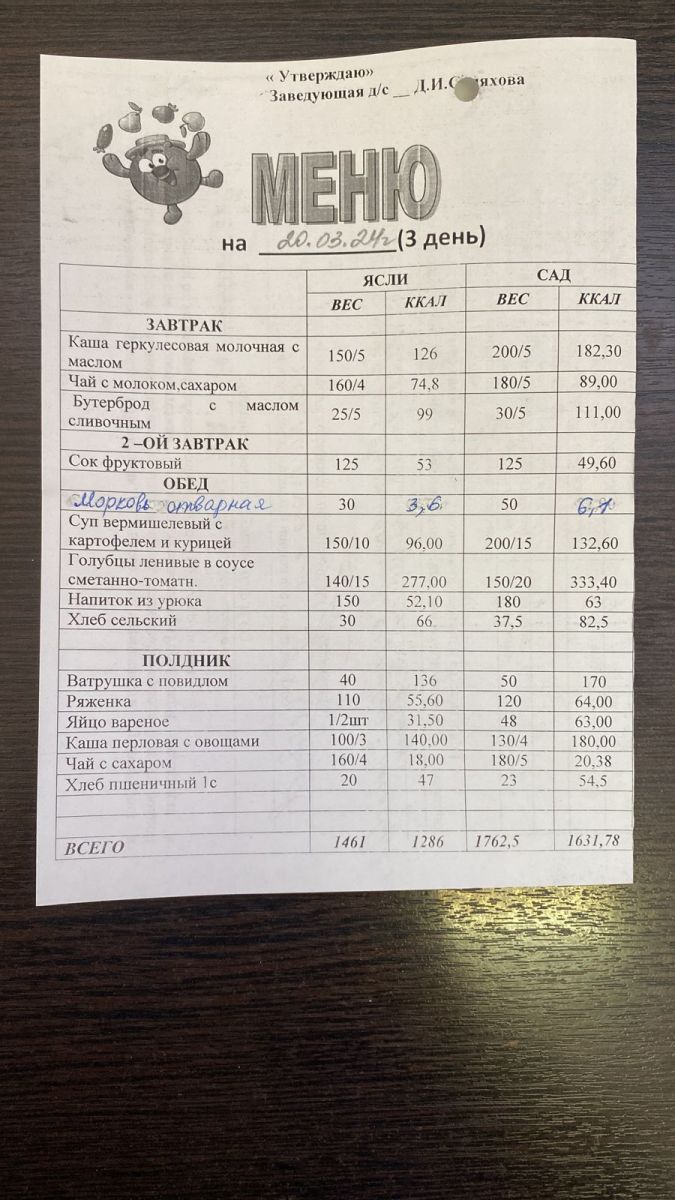 « Утверждаю»
Заведующая д/с __ Д.И.
МЕНЮ
на 20.03.24г (3 день)
ЯСЛИ САД
ВЕС ККАЛ ВЕС ККАЛ
ЗАВТРАК
Каша геркулесовая молочная с
маслом 150/5 126 200/5 182,30
Чай с молоком,сахаром 160/4 74,8 180/5 89,00
Бутерброд с маслом
сливочным 25/5 99 30/5 111,00
2 –ОЙ ЗАВТРАК
Сок фруктовый 125 53 125 49,60
ОБЕД
Морковь отварная 30 3,6 50 6,1
Суп вермишелевый с
картофелем и курицей 150/10 96,00 200/15 132,60
Голубцы ленивые в соусе
сметанно-томатн. 140/15 277,00 150/20 333,40
Напиток из урюка 150 52,10 180 63
Хлеб сельский 30 66 37,5 82,5
ПОЛДНИК
Ватрушка с повидлом 40 136 50 170
Ряженка 110 55,60 120 64,00
Яйцо вареное 1/2шт 31,50 48 63,00
Каша перловая с овощами 100/3 140,00 130/4 180,00
Чай с сахаром 160/4 18,00 180/5 20,38
Хлеб пшеничный 1с 20 47 23 54,5
ВСЕГО 1461 1286 1762,5 1631,78